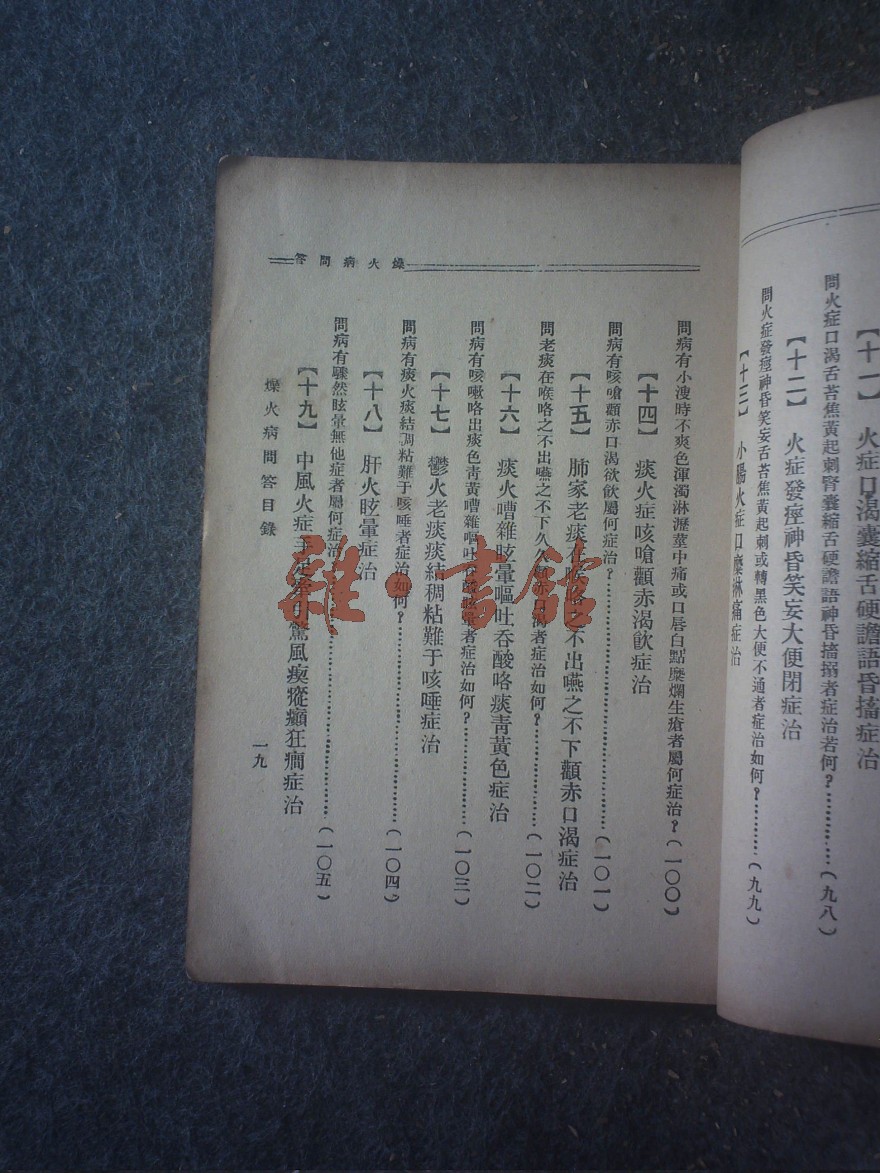 【十一】 火症口渴囊縮舌硬譫語昏搐症治
問火症口渴舌苔焦黃起刺腎囊縮舌硬譫語神昏搐搦者症治若何?…………(九八)
【十二】 火症發痙神昏笑妄大便閉症治
問火症發痙神昏笑妄舌苔焦黃起刺或轉黑色大便不通者症治如何?…………(九九)
【十三】 小腸火症口糜淋痛症治
燥火病問答
問病有小溲時不爽色渾濁淋瀝莖中痛或口唇白點糜爛生瘡者屬何症治?(一〇〇)
【十四】 痰火症咳嗆顴赤渴飲症治
問病有咳嗆顴赤口渴欲飲屬何症治?…………(一〇一)
【十五】 肺家老痰在喉咯之不出嚥之不下顴赤口渴症治
問老痰在喉咯之不出嚥之不下久久顴赤口渴者症治如何?…………(一〇二)
【十六】 痰火嘈雜眩暈嘔吐吞酸咯痰青黃色症治
問病有咳嗽咯出痰色青黃嘈雜嘔吐吞酸眩暈者症治如何?…………(一〇三)
【十七】 鬱火老痰痰結稠粘難于咳唾症治
問病有痰火痰結稠粘難于咳唾者症治如何?…………(一〇四)
【十八】 肝火眩暈症治
問病有驟然眩暈無他症者屬何症治?…………(一〇五)
【十九】 中風火症手足牽引驚風瘈瘲癲狂癎症治
燥火病問答目錄
一九
雜·書館